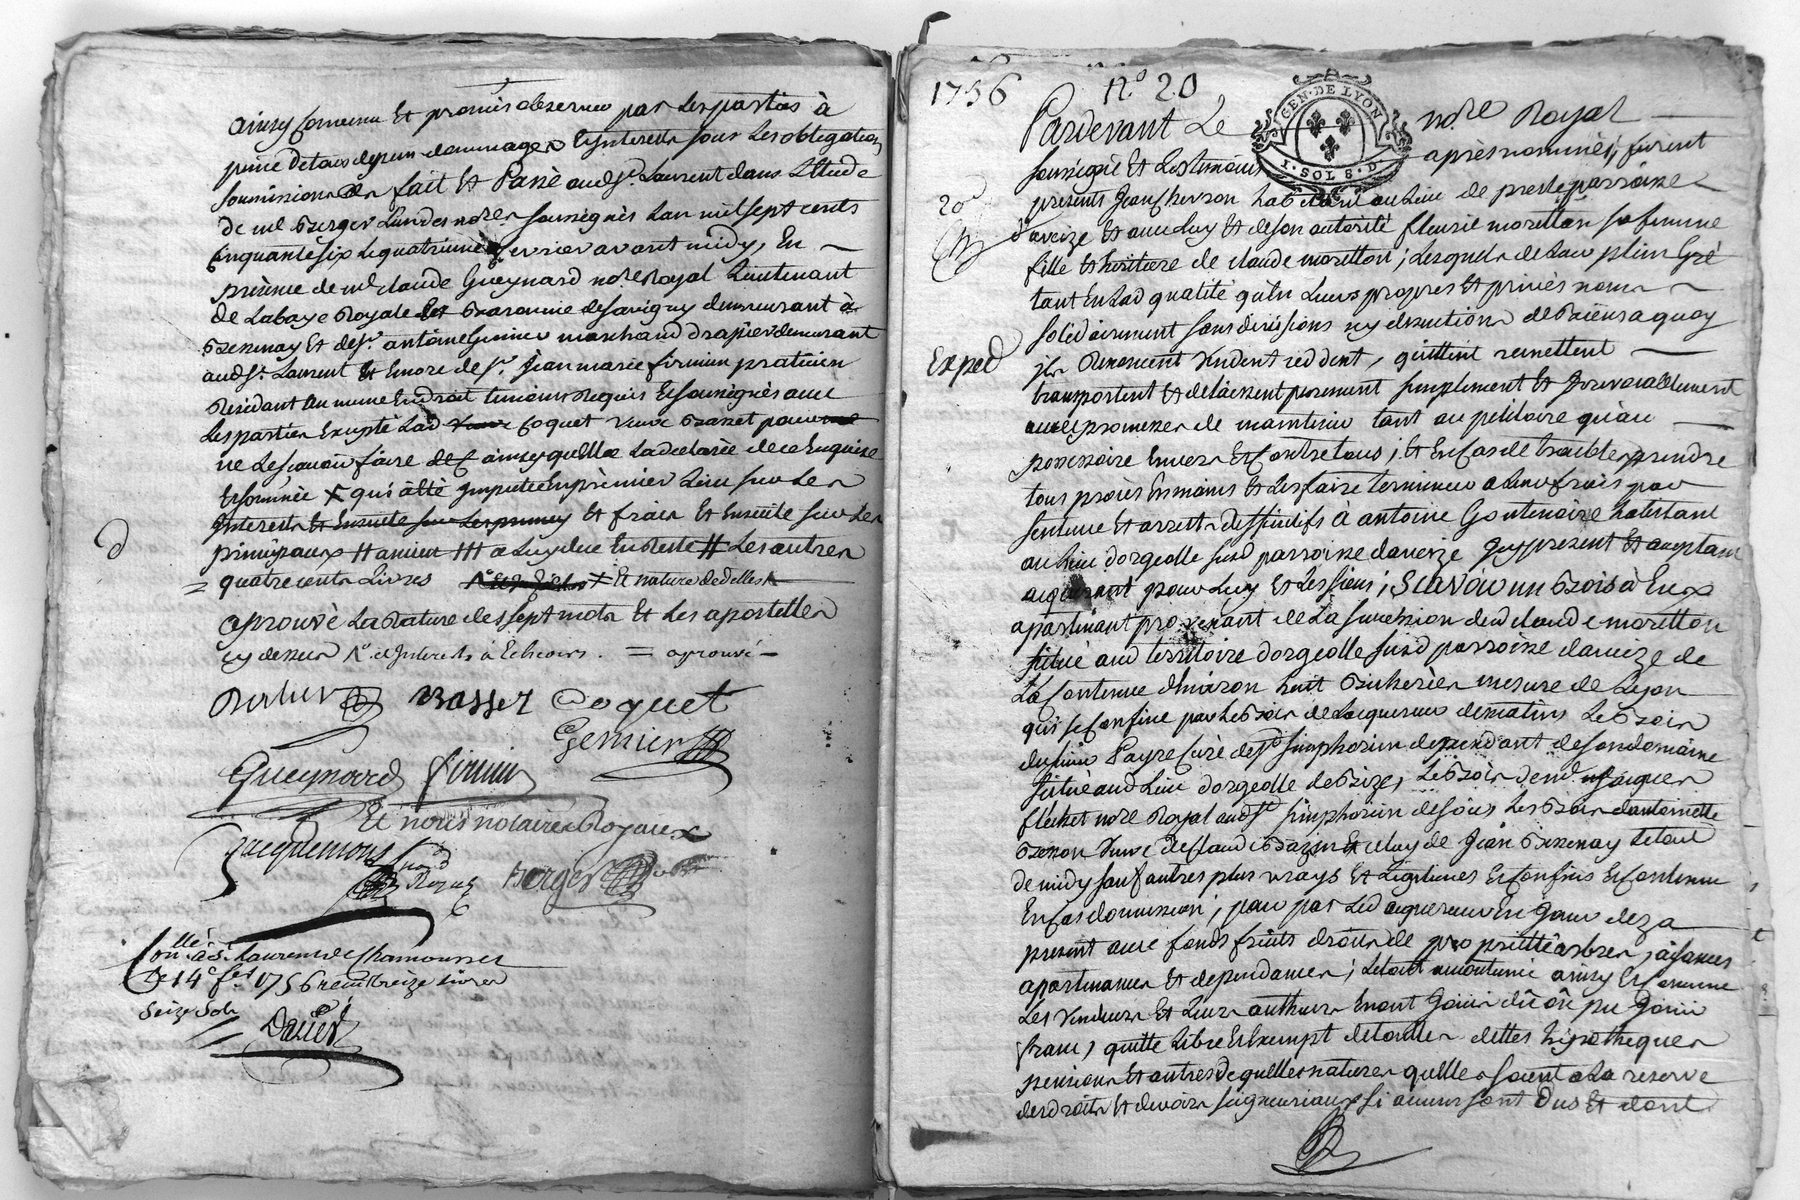 ainsy convenu Et promis observer par les parties à
peine de tous depens dommages Et Interests sous Les obligations
soumissions &a fait Et Passé aud St. Laurent dans L'Etude
de me Berger L'un des nores soussignés L'an mil sept cents
Cinquante six Le quatrieme fevrier avant midy, En
présence de me claude Gueynard nore Royal Lieutenant
de Labaye Royale Et Baronnie de Savigny demeurant à
Bessenay Et de sr. antoine Gernier marchand drapier demeurant
aud St. Laurent Et Encore de sr. Jean marie firmin praticien
Residant au meme Endroit temoins Requis Et soussignés avec
Les parties Excepté Lad Coquet veuve Basset pour
ne Le sçavoir faire ainsy quelle La declarée de ce Enquise
Et sommée X qui a été Imputée En premier Lieu sur Les
Interests Et Ensuitte sur Les Et frais Et Ensuite sur Les
principaux # # a Luy due En Reste # Les autres
= quatre cents Livres X Et nature de delles
aprouvé La Rature de sept mots Et Les apostilles
cy dessus No. d'Interests à Echeoirs. = aprouvé
Basset Coquet
Gernier
Gueynard firmin
Et nous notaires Royaux
Jacquemons
nore Royal Berger
Conllé à St Laurent de Chamousset
Le 14e fer 1756 reçu treize Livres
seize sols
1756 No. 20
GEN. DE LYON
1. SOL 8. D
Pardevant Le nore Royal
soussigné Et Les temoins après nommés, furent
20e
presents Jean habitant au Lieu de presle parroisse
d'aveize Et avec Luy Et de son autorité fleurie moretton sa femme
fille Et heritiere de claude moretton; Lesquels de Leur plein Gré
tant En Lad qualité qu'En Leurs propres Et privés noms
solidairement sans divisions ny discution de Biens a quoy
Exped
ils Renoncent Vendent ceddent, quittent remettent
transportent Et delaissent purement simplement Et Irrevocablement
avec promesse de maintenir tant au petitoire qu'au
possessoire Envers Et Contre tous; Et En Cas de trouble prendre
tous procès En mains Et Les faire terminer a Leurs frais par
sentence Et arrests deffinitifs à antoine Goutenoire habitant
au Lieu d'orgeolle susd parroisse d'aveize Icy present Et acceptant
acquerant pour Luy Et Les siens; SCAVOIR un Bois à Eux
apartenant provenant de La succession dud claude moretton
situé aud territoire d'orgeolle susd parroisse d'aveize de
La Contenue d'Environ huit Bicherées mesure de Lyon
qui se Confine par Le Bois de Lacquereur de matin Le Bois
du sieur Payre Curé de St simphorien dependant de son domaine
situé aud Lieu d'orgeolle de Bize, Le Bois de me. Jacques
flechet nore Royal aud St simphorien de soir Les Bois d'antoinette
Besson veuve de Claude Bazin Et celuy de Jean Bessenay Le tout
de midy sauf autres plus vrays Et Legitimes Et Confins Et Contenue
En Cas d'omission; pour par Led acquereur En Jouir deza
present avec fonds fruits droits de proprietté arbres, aisances
apartenances Et dependances; Le tout accoutumé ainsy Et Comme
Les Vendeurs Et Leurs autheurs En ont Joui dû ou pu Jouir
franc, quitte Libre Et Exempt de tailles dettes hipotheques
pensions Et autres de quelles natures quelles soient a La reserve
des droits Et devoirs seigneuriaux si aucuns sont Dus Et dont